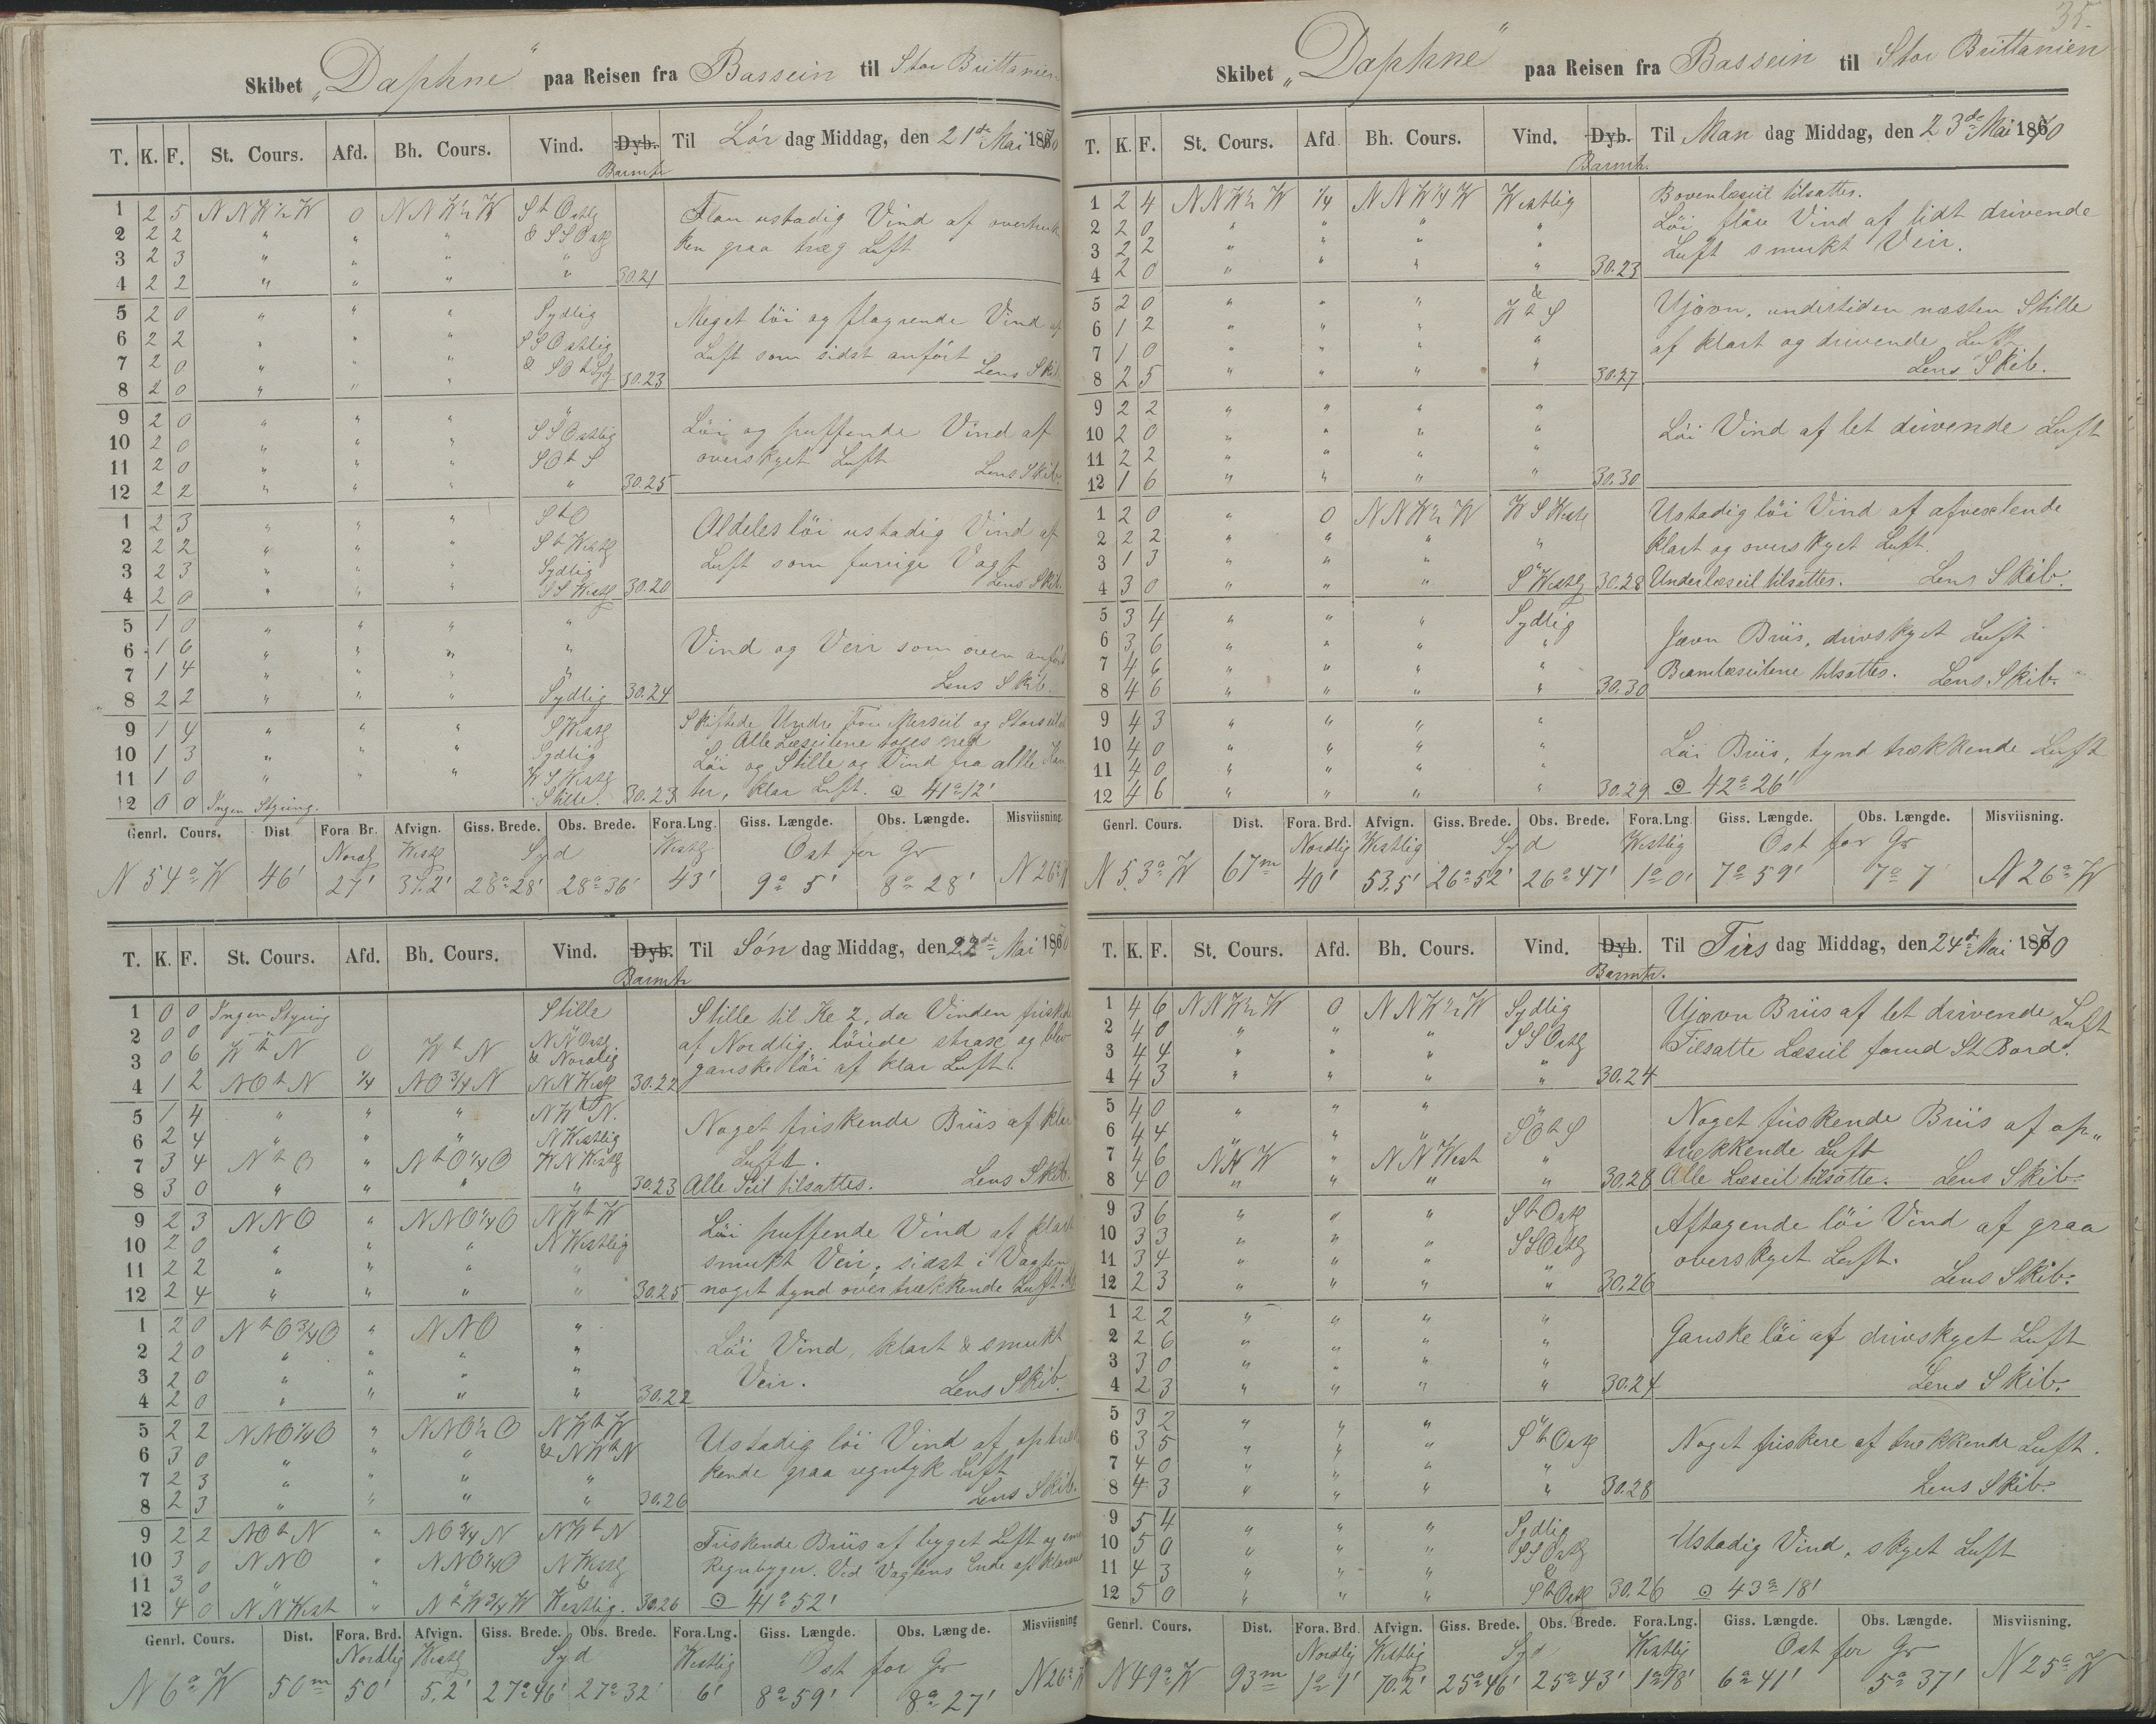 Skibet „Daphne“ paa Reisen fra Bassein til Stor Brittanien
T. K. F. St. Cours. Afd. Bh. Cours. Vind. Dyb. Barmtr Til Lör dag Middag, den 21de Mai 1870
1 2 5 NNW½W 0 NNW½W StOstlg Flau ustadig Vind af overtruk
2 2 2 " " " & SSOstl ken graa træg Luft
3 2 3 " " " "
4 2 2 " " " " 30.21
5 2 0 " " " Sydlig Meget löi og flagrende Vind af
6 2 2 " " " SSOstlig Luft som sidst anfört
7 2 0 " " " & SOtSydl Lens Skib
8 2 0 " " " 30.23
9 2 0 " " " " Löi og puffende Vind af
10 2 0 " " " SSOstlig overskyet Luft
11 2 0 " " " SOtS Lens Skib.
12 2 2 " " " " 30.25
1 2 3 " " " StO Aldeles löi ustadig Vind af
2 2 2 " " " StWestlg Luft som forrige Vagt
3 2 3 " " " Sydlig Lens Skib.
4 2 0 " " " SSWestl 30.20
5 1 0 " " " "
6 1 6 " " " " Vind og Veir som oven anfört
7 1 4 " " " "
8 2 2 " " " Sydlig 30.24 Lens Skib.
9 1 4 " " " SWestlg Skiftede Undre Fore Merseil og Storseilet
10 1 3 " " " Sydlig Alle Læseilene toges ned
11 1 0 " " " WSWestlg Löi og Stille og Vind fra alle Kan
12 0 0 Ingen Styring. Stille. 30.23 ter, klar Luft. ⊙ 41°12'
Genrl. Cours. Dist. Fora Br. Afvign. Giss. Brede. Obs. Brede. Fora.Lng. Giss. Længde. Obs. Længde. Misviisning
Nordlg Westlg Syd Westlg Ost for Gr
N 54° W 46' 27' 37.2' 28°28' 28°36' 43' 9° 5' 8° 28' N 26° W
T. K. F. St. Cours. Afd. Bh. Cours. Vind. Dyb. Barmtr Til Sön dag Middag, den 22de Mai 1870
1 0 0 Ingen Styring Stille Stille til Kl 2, da Vinden friskede
2 0 0 " NNOstlg af Nordlig, löiede strax og blev
3 0 6 WtN 0 WtN & Nordlig ganske löi af klar Luft.
4 1 2 NOtN ¼ NO¾N NNWestl 30.22
5 1 4 " " " NWtN. Noget friskende Briis af klar
6 2 4 " " " NWestlig Luft.
7 3 4 NtO " NtO¼O WNWestlg
8 3 0 " " " " 30.23 Alle Seil tilsattes. Lens Skib.
9 2 3 NNO " NNO¼O NWtW Löi puffende Vind af klart
10 2 0 " " " NWestlig smukt Veir, sidst i Vagten
11 2 2 " " " "
12 2 4 " " " " 30.25 noget tynd overtrækkende Luft.
1 2 0 NtO¾O " NNO "
2 2 0 " " " " Löi Vind, klart & smukt
3 2 0 " " " " Veir. Lens Skib.
4 2 0 " " " " 30.22
5 2 2 NNO¼O " NNO½O NWtW Ustadig löi Vind af optræk
6 3 0 " " " & NWtN kende graa regntyk Luft
7 2 3 " " " "
8 2 3 " " " " 30.26 Lens Skib.
9 2 2 NOtN " NO¾N NWtN Friskende Briis af byget Luft og
10 3 0 NNO " NNO¼O NWestlg Regnbyger. Ved Vagtens Ende
11 3 0 " " " &
12 4 0 NNWest " NtW¾W Westlig. 30.26 ⊙ 41° 52'
Genrl. Cours. Dist. Fora. Brd. Afvign. Giss. Brede. Obs. Brede. Fora.Lng. Giss. Længde. Obs. Længde. Misviisning
Nordlig Westlg Syd Westlig Ost for Gr
N 6° W 50m 50' 5.2' 27°46' 27°32' 6' 8° 59' 8° 27' N 26° W
35.
Skibet „Daphne“ paa Reisen fra Bassein til Stor Brittanien
T. K. F. St. Cours. Afd Bh. Cours. Vind. Dyb. Barmtr. Til Man dag Middag, den 23de Mai 1870
1 2 4 NNW½W ¼ NNW¼W Westlig Bovenlæseil tilsattes.
2 2 0 " " " " Löi flau Vind af lidt drivende
3 2 2 " " " " Luft smukt Veir.
4 2 0 " " " " 30.23
5 2 0 " " " & Ujævn, undertiden næsten Stille
6 1 2 " " " WtS af klart og drivende Luft
7 1 0 " " " " Lens Skib.
8 2 5 " " " " 30.27
9 2 2 " " " "
10 2 0 " " " " Löi Vind af let drivende Luft
11 2 2 " " " "
12 1 6 " " " " 30.30
1 2 0 " 0 NNW½W WSWestl Ustadig löi Vind af afvexlende
2 2 2 " " " " klart og overskyet Luft.
3 1 3 " " "
4 3 0 " " " SWestlg 30.28 Underlæseil tilsattes. Lens Skib.
5 3 4 " " " Sydlig
6 3 6 " " " " Jævn Briis, drivskyet Luft
7 4 6 " " " " Bramlæseilene tilsattes. Lens Skib.
8 4 6 " " " " 30.30
9 4 3 " " " "
10 4 0 " " " " Löi Briis, tynd trækkende Luft
11 4 0 " " " "
12 4 6 " " " " 30.29 ⊙ 42° 26'
Genrl. Cours. Dist. Fora. Brd. Afvign. Giss. Brede. Obs. Brede. Fora.Lng Giss. Længde. Obs. Længde. Misviisning.
Nordlig Westlig Syd Westlig Ost for Gr
N 53° W 67m 40' 53.5' 26°52' 26°47' 1°0' 7° 59' 7° 7' N 26° W
T. K. F. St. Cours. Afd. Bh. Cours. Vind. Dyb. Barmtr. Til Tirs dag Middag, den 24de Mai 1870
1 4 6 NNW½W 0 NNW½W Sydlig Ujævn Briis af let drivende Luft
2 4 0 " " " SSOstlg Tilsatte Læseil forud St. Bord.
3 4 4 " " " "
4 4 3 " " " " 30.24
5 4 0 " " " " Noget friskende Briis af op„
6 4 4 " " " SOtS trækkende Luft
7 4 6 NNW " NNWest "
8 4 0 " " " " 30.28 Alle Læseil tilsatte. Lens Skib.
9 3 6 " " " StOstl Aftagende löi Vind af graa
10 3 3 " " " SSOstlg overskyet Luft.
11 3 4 " " " "
12 2 3 " " " " 30.26 Lens Skib.
1 2 2 " " " "
2 2 6 " " " " Ganske löi af drivskyet Luft
3 3 0 " " " "
4 2 3 " " " " 30.24 Lens Skib.
5 3 2 " " " "
6 3 5 " " " StOstl Noget friskere af trækkende Luft.
7 4 0 " " " "
8 4 3 " " " " 30.28 Lens Skib.
9 5 4 " " " Sydlig
10 5 0 " " " SSOstlg Ustadig Vind, skyet Luft
11 4 3 " " " &
12 5 0 " " " StOstl 30.26 ⊙ 43° 18'
Genrl. Cours. Dist. Fora. Brd. Afvign. Giss. Brede. Obs. Brede. Fora.Lng. Giss. Længde. Obs. Længde. Misviisning.
Nordlig Westlig Syd Westlig Ost for Gr
N 49° W 93m 1° 1' 70.2' 25°46' 25°43' 1°18' 6° 41' 5° 37' N 25° W